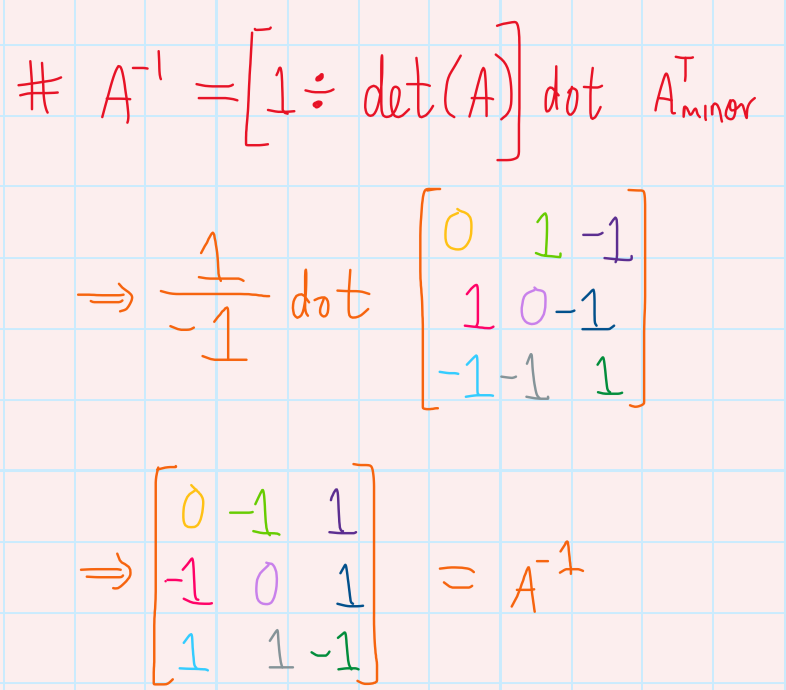 # A⁻¹ = [1 ÷ det(A)] dot Aᵀminor
⇒ 1/-1 dot [0 1 -1
1 0 -1
-1 -1 1]
⇒ [0 -1 1
-1 0 1
1 1 -1] = A⁻¹